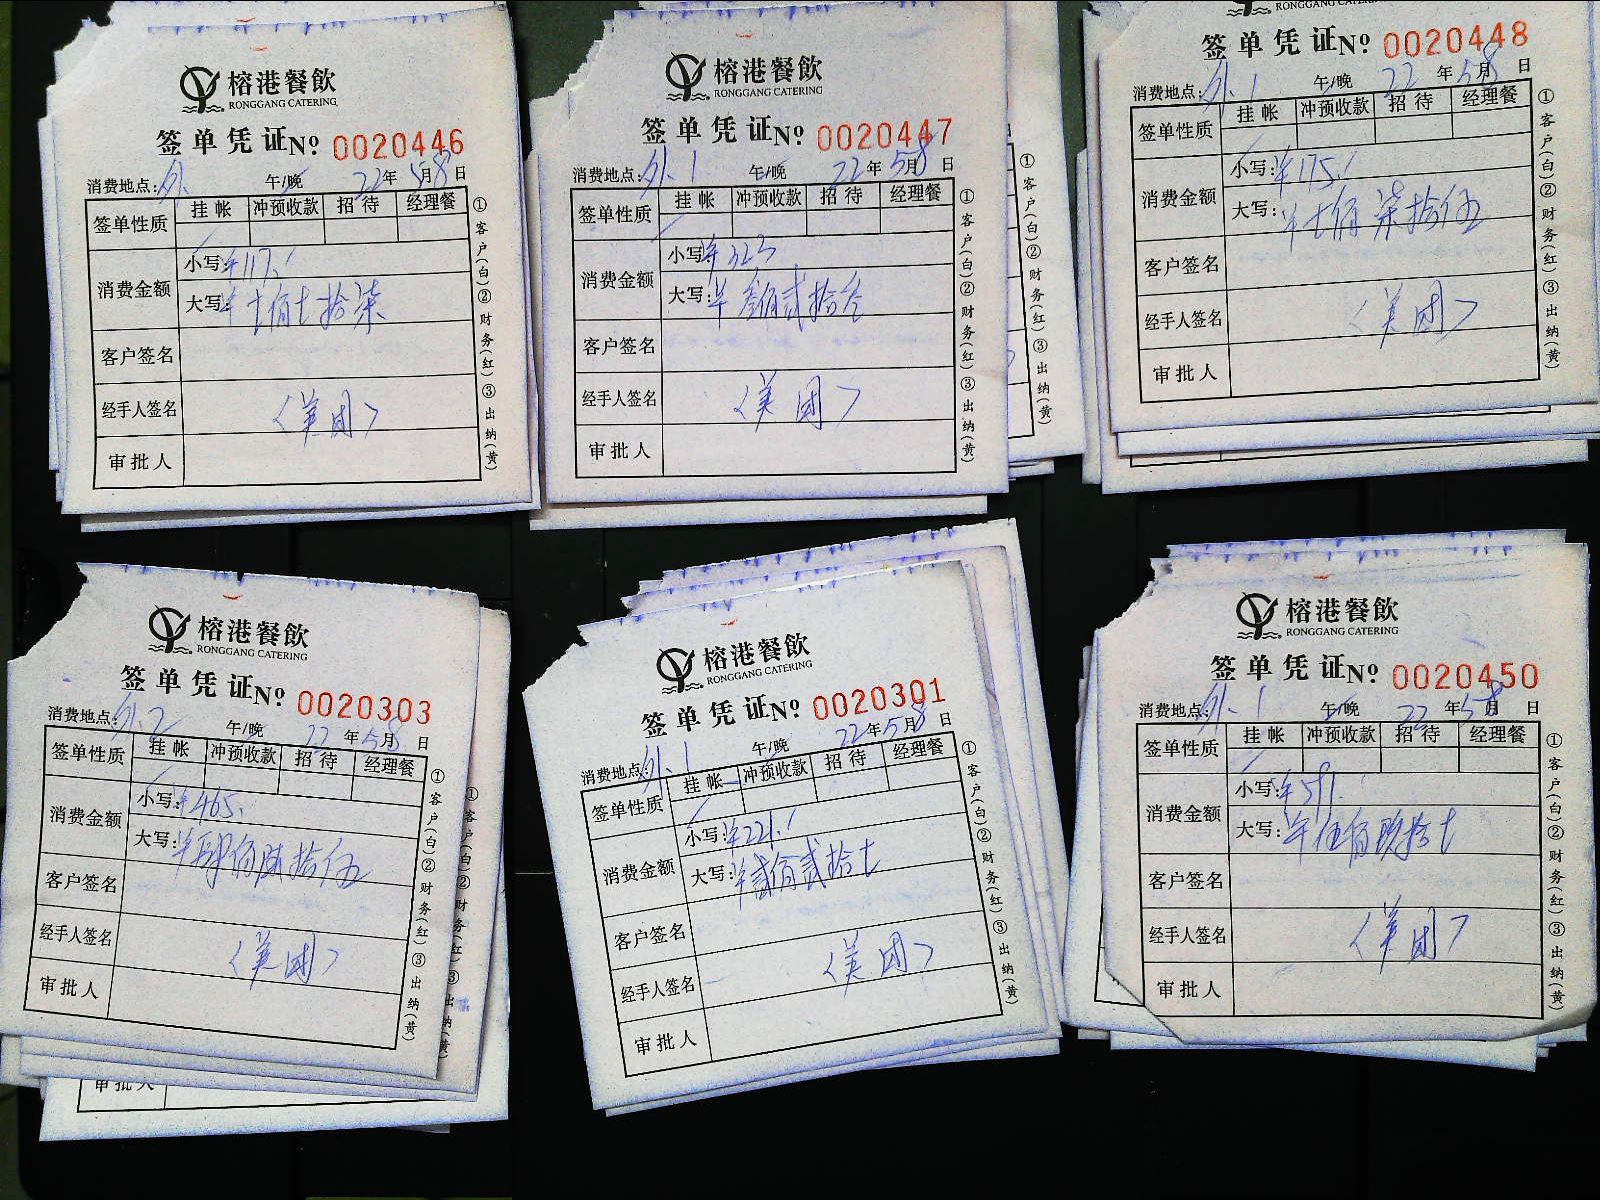 榕港餐飲
RONGGANG CATERING
签单凭证No 0020446
消费地点:外. 午/晚 22年5月8日
签单性质 挂帐 冲预收款 招待 经理餐
消费金额 小写:¥117.
大写:¥七佰七拾柒
客户签名
经手人签名 〈美团〉
审批人
①客户(白)②财务(红)③出纳(黄)
榕港餐飲
RONGGANG CATERING
签单凭证No 0020447
消费地点:外.1 午/晚 22年5月8日
签单性质 挂帐 冲预收款 招待 经理餐
消费金额 小写:¥323
大写:¥叁佰贰拾叁
客户签名
经手人签名 〈美团〉
审批人
①客户(白)②财务(红)③出纳(黄)
①客户(白)②财务(红)③出纳(黄)
RONGGANG CATERING
签单凭证No 0020448
消费地点:外.1 午/晚 22年5月8日
签单性质 挂帐 冲预收款 招待 经理餐
消费金额 小写:¥175.
大写:¥七佰柒拾伍
客户签名
经手人签名 〈美团〉
审批人
①客户(白)②财务(红)③出纳(黄)
榕港餐飲
RONGGANG CATERING
签单凭证No 0020303
消费地点:外.2 午/晚 22年5月8日
签单性质 挂帐 冲预收款 招待 经理餐
消费金额 小写:¥465.
大写:¥肆佰陆拾伍
客户签名
经手人签名 〈美团〉
审批人
①客户(白)②财务(红)③出纳(黄)
①客户(白)②财务(红)③出纳(黄)
审批人
榕港餐飲
RONGGANG CATERING
签单凭证No 0020301
消费地点:外.1 午/晚 22年5月8日
签单性质 挂帐 冲预收款 招待 经理餐
消费金额 小写:¥221.
大写:¥贰佰贰拾七
客户签名
经手人签名 〈美团〉
审批人
①客户(白)②财务(红)③出纳(黄)
榕港餐飲
RONGGANG CATERING
签单凭证No 0020450
消费地点:外.1 午/晚 22年5月8日
签单性质 挂帐 冲预收款 招待 经理餐
消费金额 小写:¥591.
大写:¥伍佰玖拾七
客户签名
经手人签名 〈美团〉
审批人
①客户(白)②财务(红)③出纳(黄)